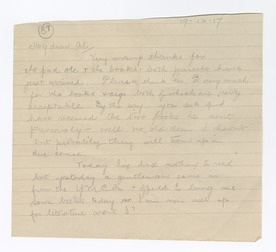 (87)
19-12-17
My dear Ali,
Very warm thanks for
the pad etc & the books. Both parcels have
just arrived. Please thank Mr. very much
for the books & say both are very
acceptable. By the way you ask if I
have received the two books he sent
previously – well no old dear I haven't
but probably they will turn up in
due course.
Today has had nothing to read
but yesterday a gentleman came in
from the Y.M.C.A. & offered to bring me
down books today so I am now well up
for literature wasn't I?